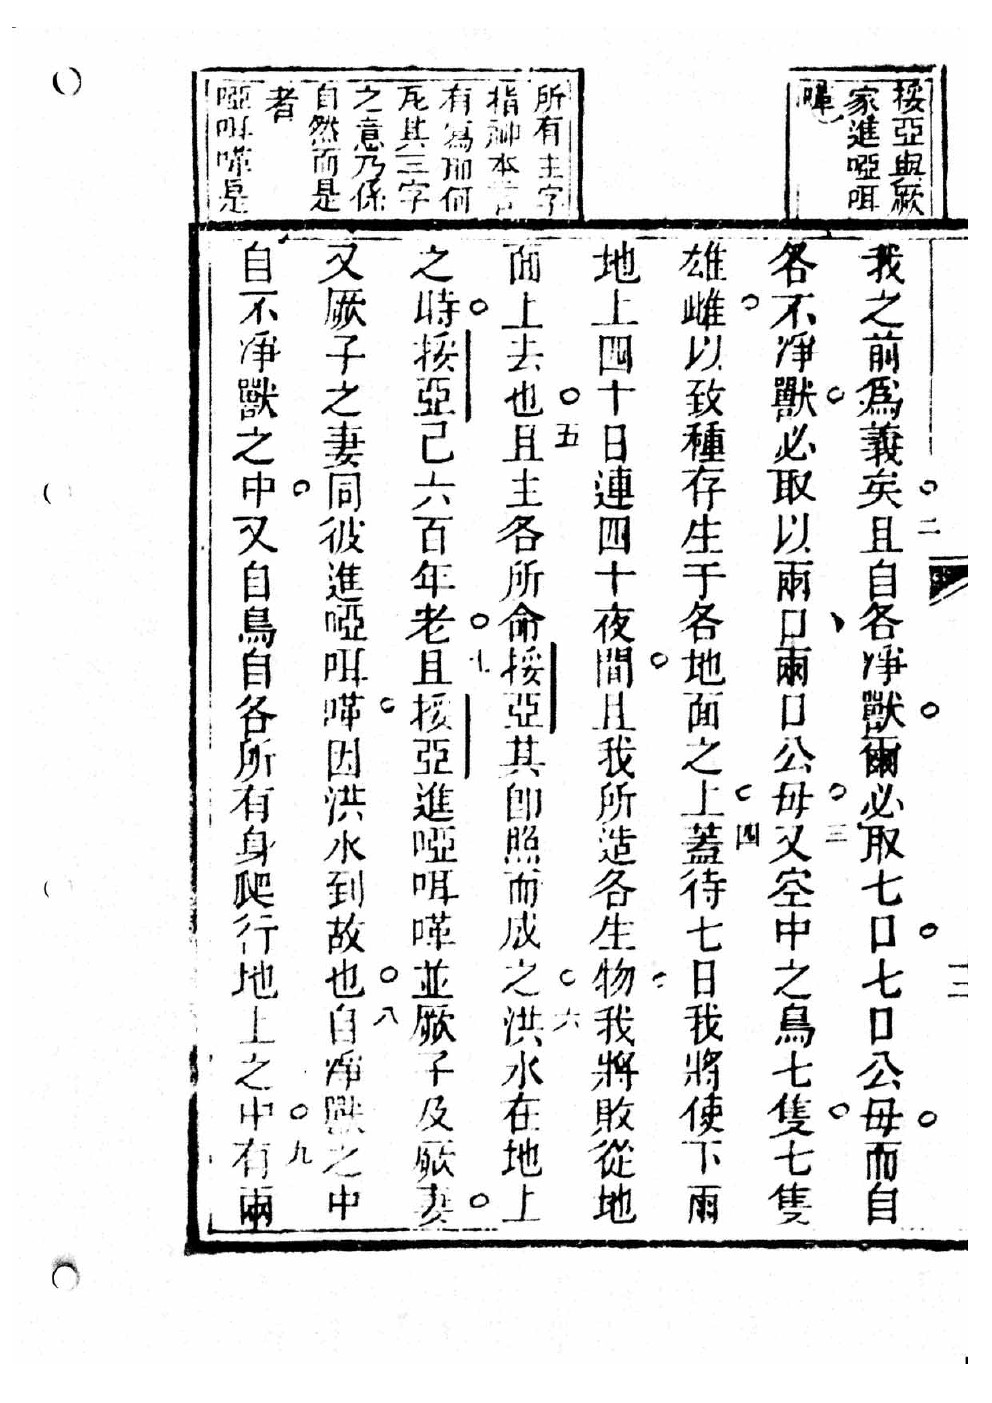 挼亞與厥
家進啞咡
嘩
我之前爲義矣。二且自各凈獸。爾必取七口。七口公母。而自
各不凈獸。必取以兩口、兩口公母。三又空中之鳥七隻。七隻
雄雌。以致種存生于各地面之上。四蓋待七日我將使下雨
所有主字
指神本言
有寫耶何
瓦其三字
之意乃係
自然而是
者
啞咡嘩是
地上四十日連四十夜間。且我所造各生物。我將敗從地
面上去也。五且主各所命挼亞其即照而成之。六洪水在地上
之時。挼亞己六百年老。七且挼亞進啞咡嘩並厥子及厥妻。
又厥子之妻同彼進啞咡嘩。因洪水到故也。八自凈獸之中
自不凈獸之中。又自鳥自各所有身爬行地上之中。九有兩